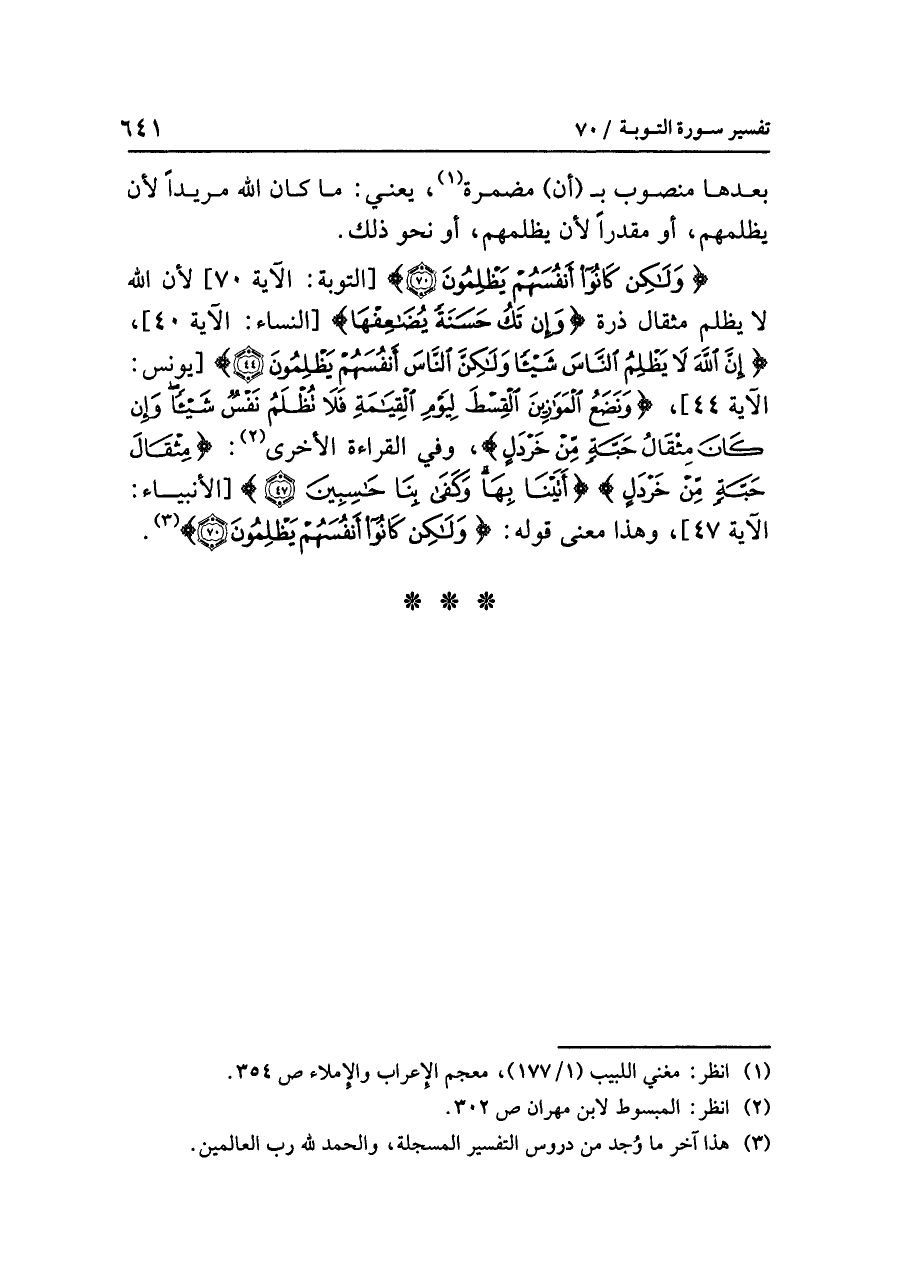 تفسير سورة التوبة / ٧٠ ٦٤١
بعدها منصوب بـ (أن) مضمرة(١)، يعني: ما كان الله مريداً لأن
يظلمهم، أو مقدراً لأن يظلمهم، أو نحو ذلك.
﴿ وَلَٰكِن كَانُوٓا۟ أَنفُسَهُمْ يَظْلِمُونَ ٧٠﴾ [التوبة: الآية ٧٠] لأن الله
لا يظلم مثقال ذرة ﴿وَإِن تَكُ حَسَنَةً يُضَٰعِفْهَا﴾ [النساء: الآية ٤٠]،
﴿ إِنَّ ٱللَّهَ لَا يَظْلِمُ ٱلنَّاسَ شَيْـًٔا وَلَٰكِنَّ ٱلنَّاسَ أَنفُسَهُمْ يَظْلِمُونَ ٤٤﴾ [يونس:
الآية ٤٤]، ﴿ وَنَضَعُ ٱلْمَوَٰزِينَ ٱلْقِسْطَ لِيَوْمِ ٱلْقِيَٰمَةِ فَلَا تُظْلَمُ نَفْسٌ شَيْـًٔا ۖ وَإِن
كَانَ مِثْقَالُ حَبَّةٍ مِّنْ خَرْدَلٍ﴾، وفي القراءة الأخرى(٢): ﴿ مِثْقَالَ
حَبَّةٍ مِّنْ خَرْدَلٍ ﴾ ﴿أَتَيْنَا بِهَا ۗ وَكَفَىٰ بِنَا حَٰسِبِينَ ٤٧ ﴾ [الأنبياء:
الآية ٤٧]، وهذا معنى قوله: ﴿ وَلَٰكِن كَانُوٓا۟ أَنفُسَهُمْ يَظْلِمُونَ ٧٠﴾(٣).
* * *
(١) انظر: مغني اللبيب (١/ ١٧٧)، معجم الإعراب والإملاء ص ٣٥٤.
(٢) انظر: المبسوط لابن مهران ص ٣٠٢.
(٣) هذا آخر ما وُجد من دروس التفسير المسجلة، والحمد لله رب العالمين.